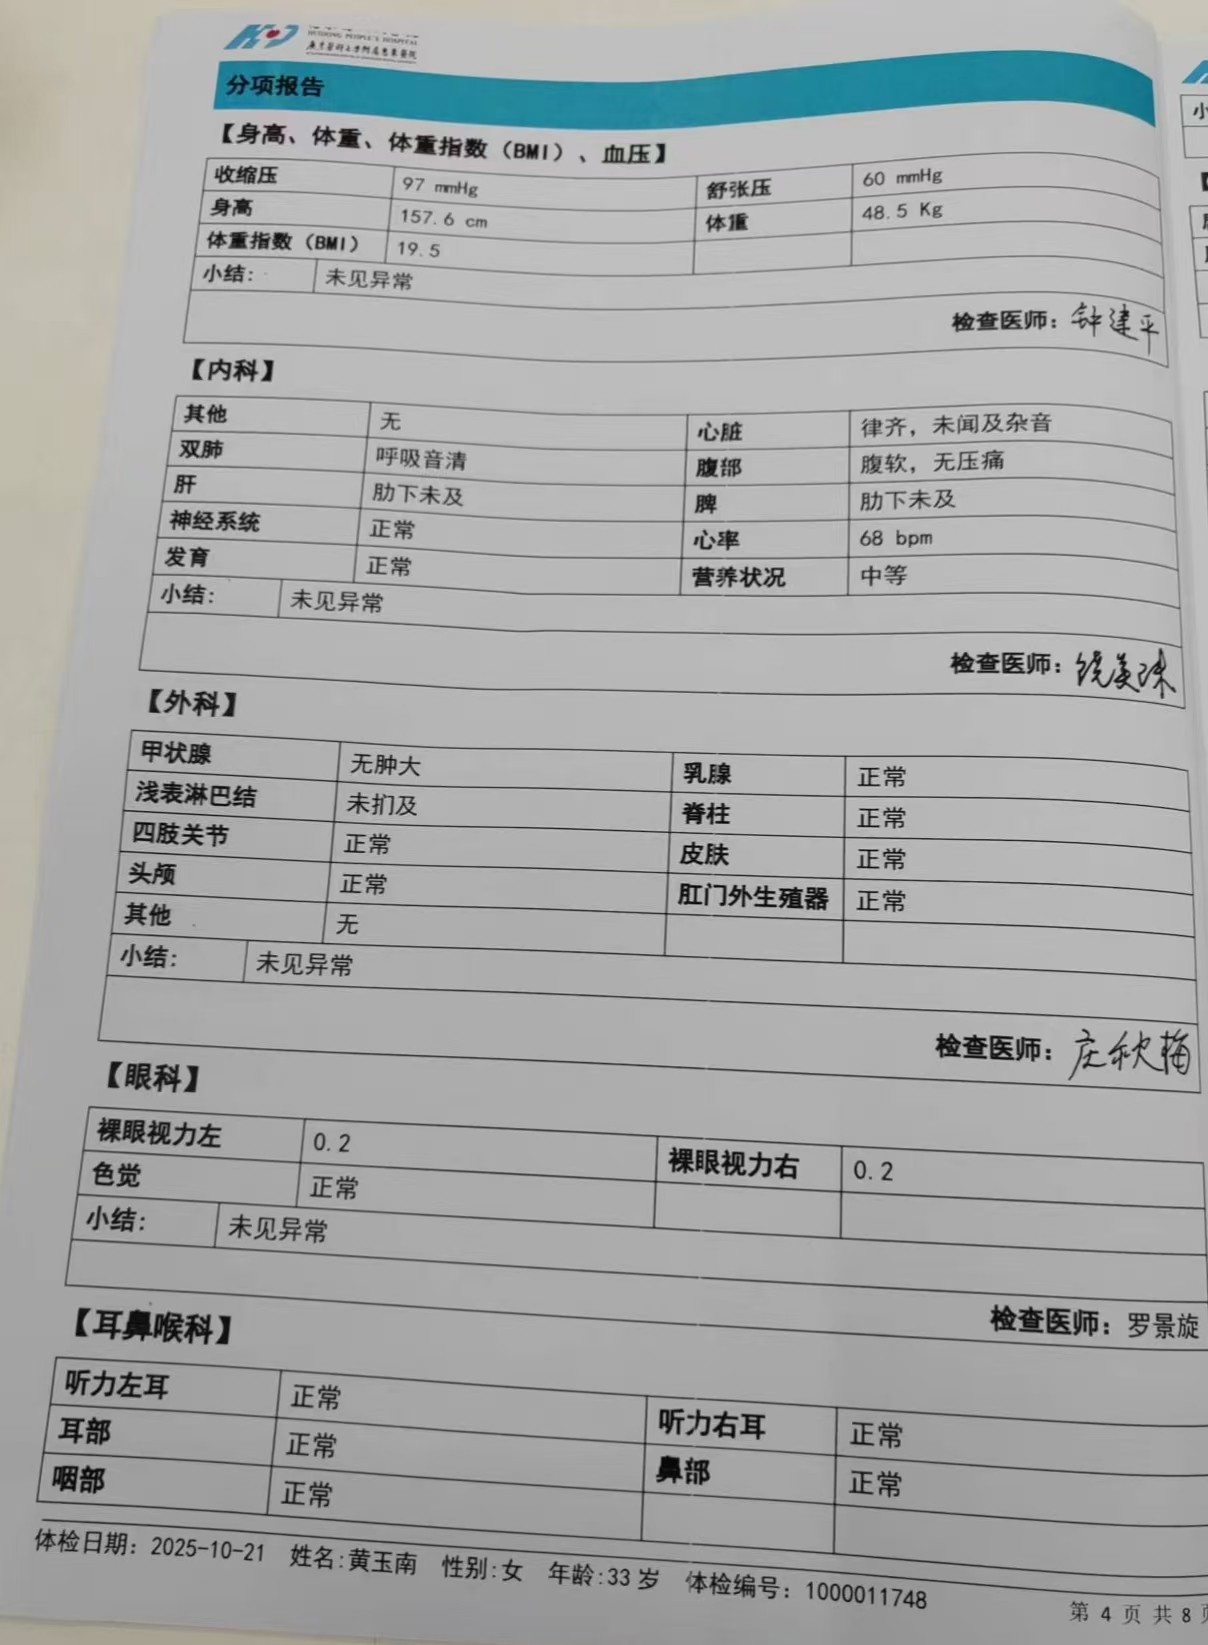 HUIDONG PEOPLE'S HOSPITAL
分项报告
【身高、体重、体重指数（BMI）、血压】
收缩压 97 mmHg 舒张压 60 mmHg
身高 157.6 cm 体重 48.5 Kg
体重指数（BMI） 19.5
小结: 未见异常
检查医师: 钟建平
【内科】
其他 无 心脏 律齐，未闻及杂音
双肺 呼吸音清 腹部 腹软，无压痛
肝 肋下未及 脾 肋下未及
神经系统 正常 心率 68 bpm
发育 正常 营养状况 中等
小结: 未见异常
检查医师: 饶美珠
【外科】
甲状腺 无肿大 乳腺 正常
浅表淋巴结 未扪及 脊柱 正常
四肢关节 正常 皮肤 正常
头颅 正常 肛门外生殖器 正常
其他 无
小结: 未见异常
检查医师: 庄秋梅
【眼科】
裸眼视力左 0.2 裸眼视力右 0.2
色觉 正常
小结: 未见异常
检查医师: 罗景旋
【耳鼻喉科】
听力左耳 正常 听力右耳 正常
耳部 正常 鼻部 正常
咽部 正常
体检日期: 2025-10-21 姓名:黄玉南 性别:女 年龄:33 岁 体检编号: 1000011748
第 4 页 共 8 页